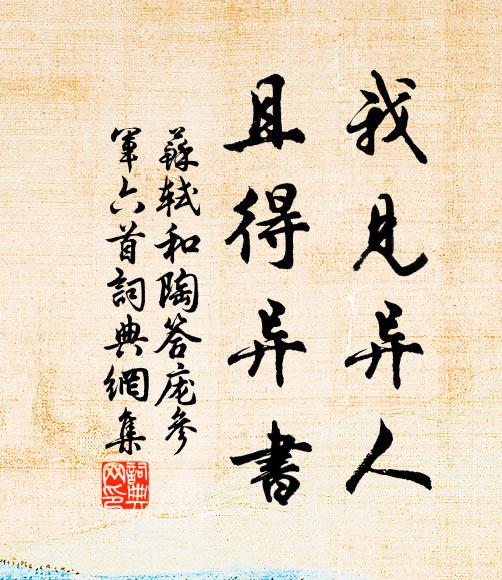 我見异人
且得异書
蘇軾和陶答庞參
軍六首詞典網集
詞典
网印